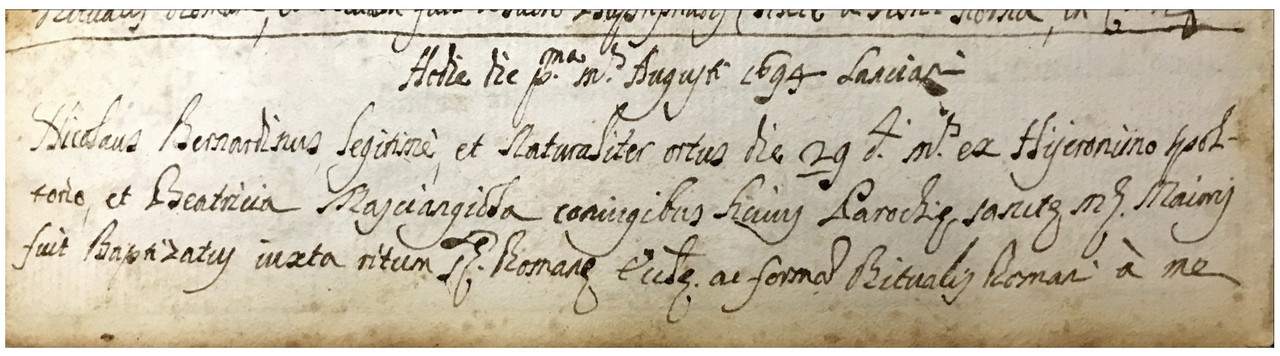 Ritualis Romani, et
Hodie die p.ma m.s Augusti 1694 Lanciani
Nicolaus Bernardinus, legitimè, et Naturaliter ortus die 29 d. m.s ex Hijeronimo spol-
torio, et Beatricia Masciangiola coniugibus huius Parochię sanctę Mę. Maioris
fuit Baptizatus iuxta ritum Sę. Romanę Eccłę. ac formã Ritualis Romani à me